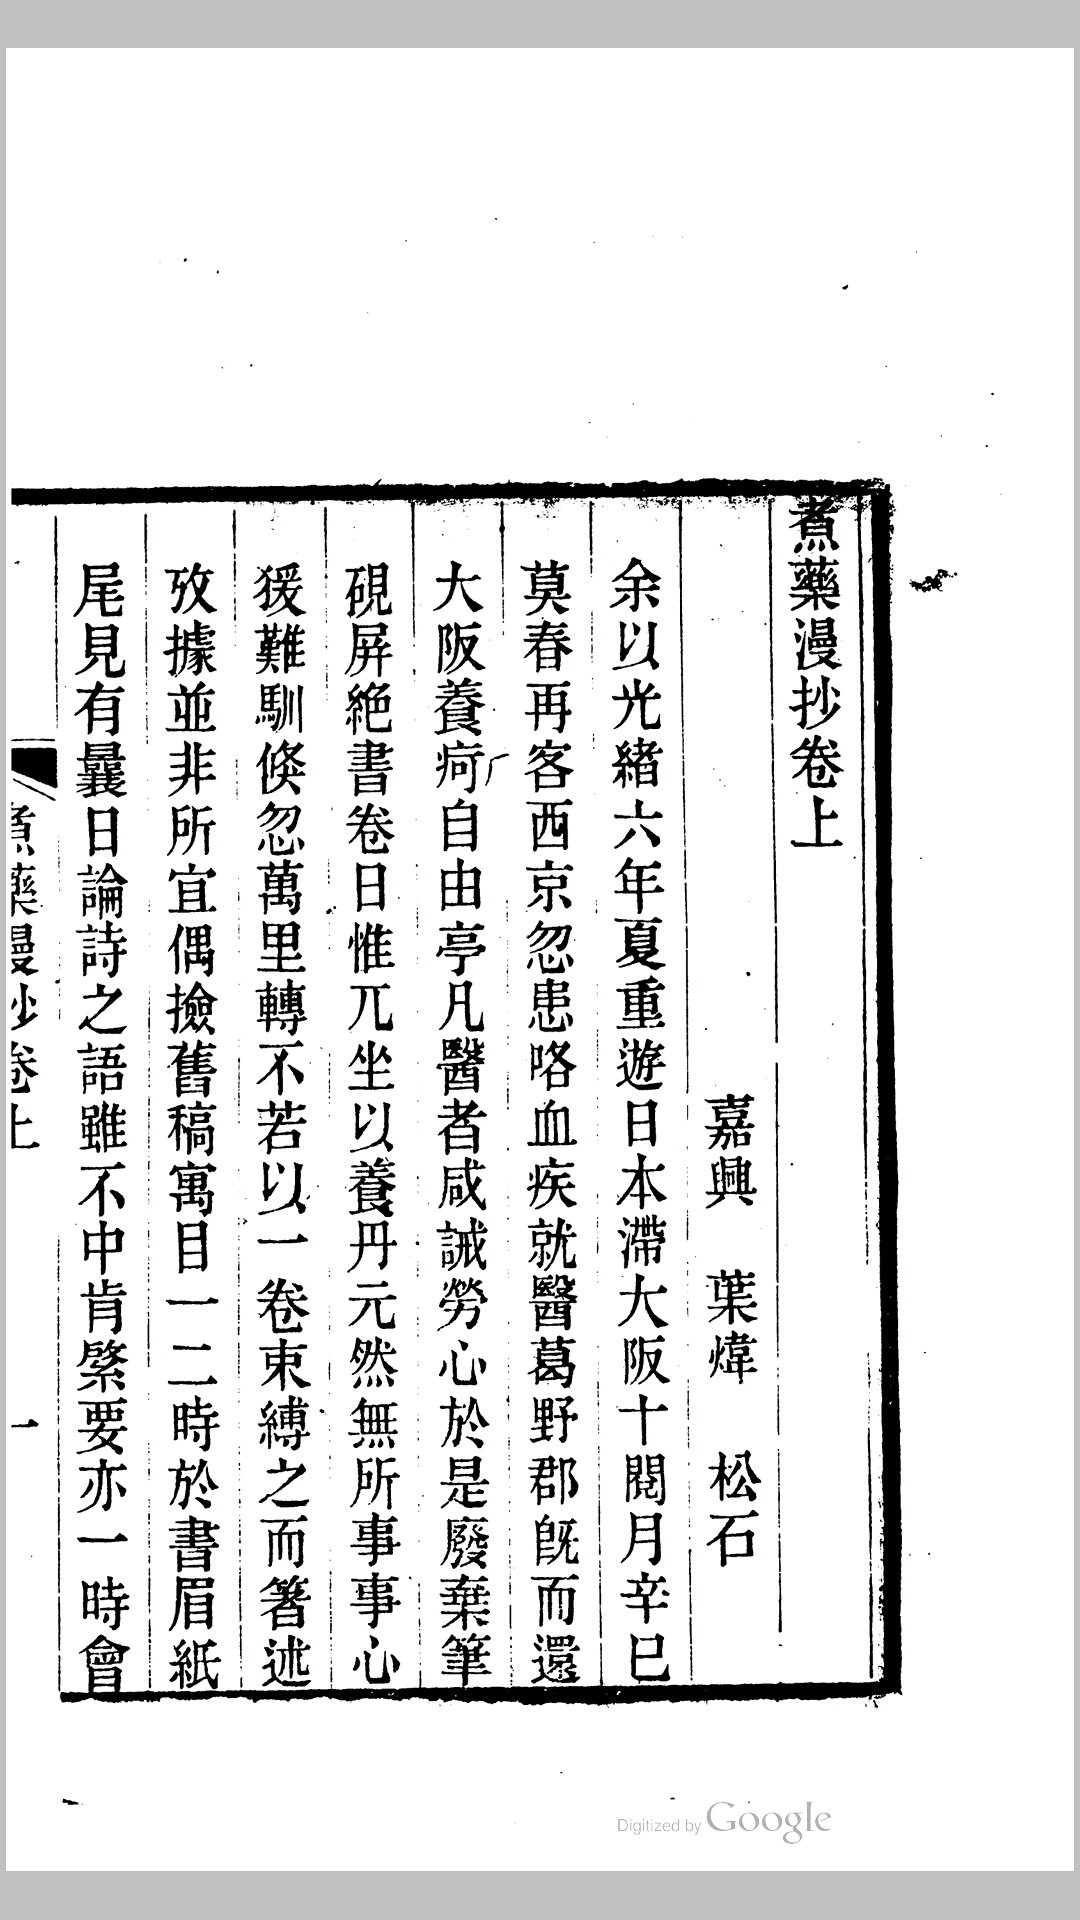 煮藥漫抄卷上
嘉興　葉煒　松石
余以光緒六年夏重遊日本滯大阪十閱月辛巳
莫春再客西京忽患咯血疾就醫葛野郡旣而還
大阪養疴自由亭凡醫者咸誡勞心於是廢棄筆
硯屏絶書卷日惟兀坐以養丹元然無所事事心
猨難馴倐忽萬里轉不若以一卷束縛之而箸述
攷據並非所宜偶撿舊稿寓目一二時於書眉紙
尾見有曩日論詩之語雖不中肯綮要亦一時會
煮藥漫抄卷上
一
Digitized by Google